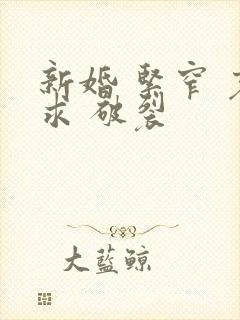 新婚 緊窄
求 破裂
大藍鯨